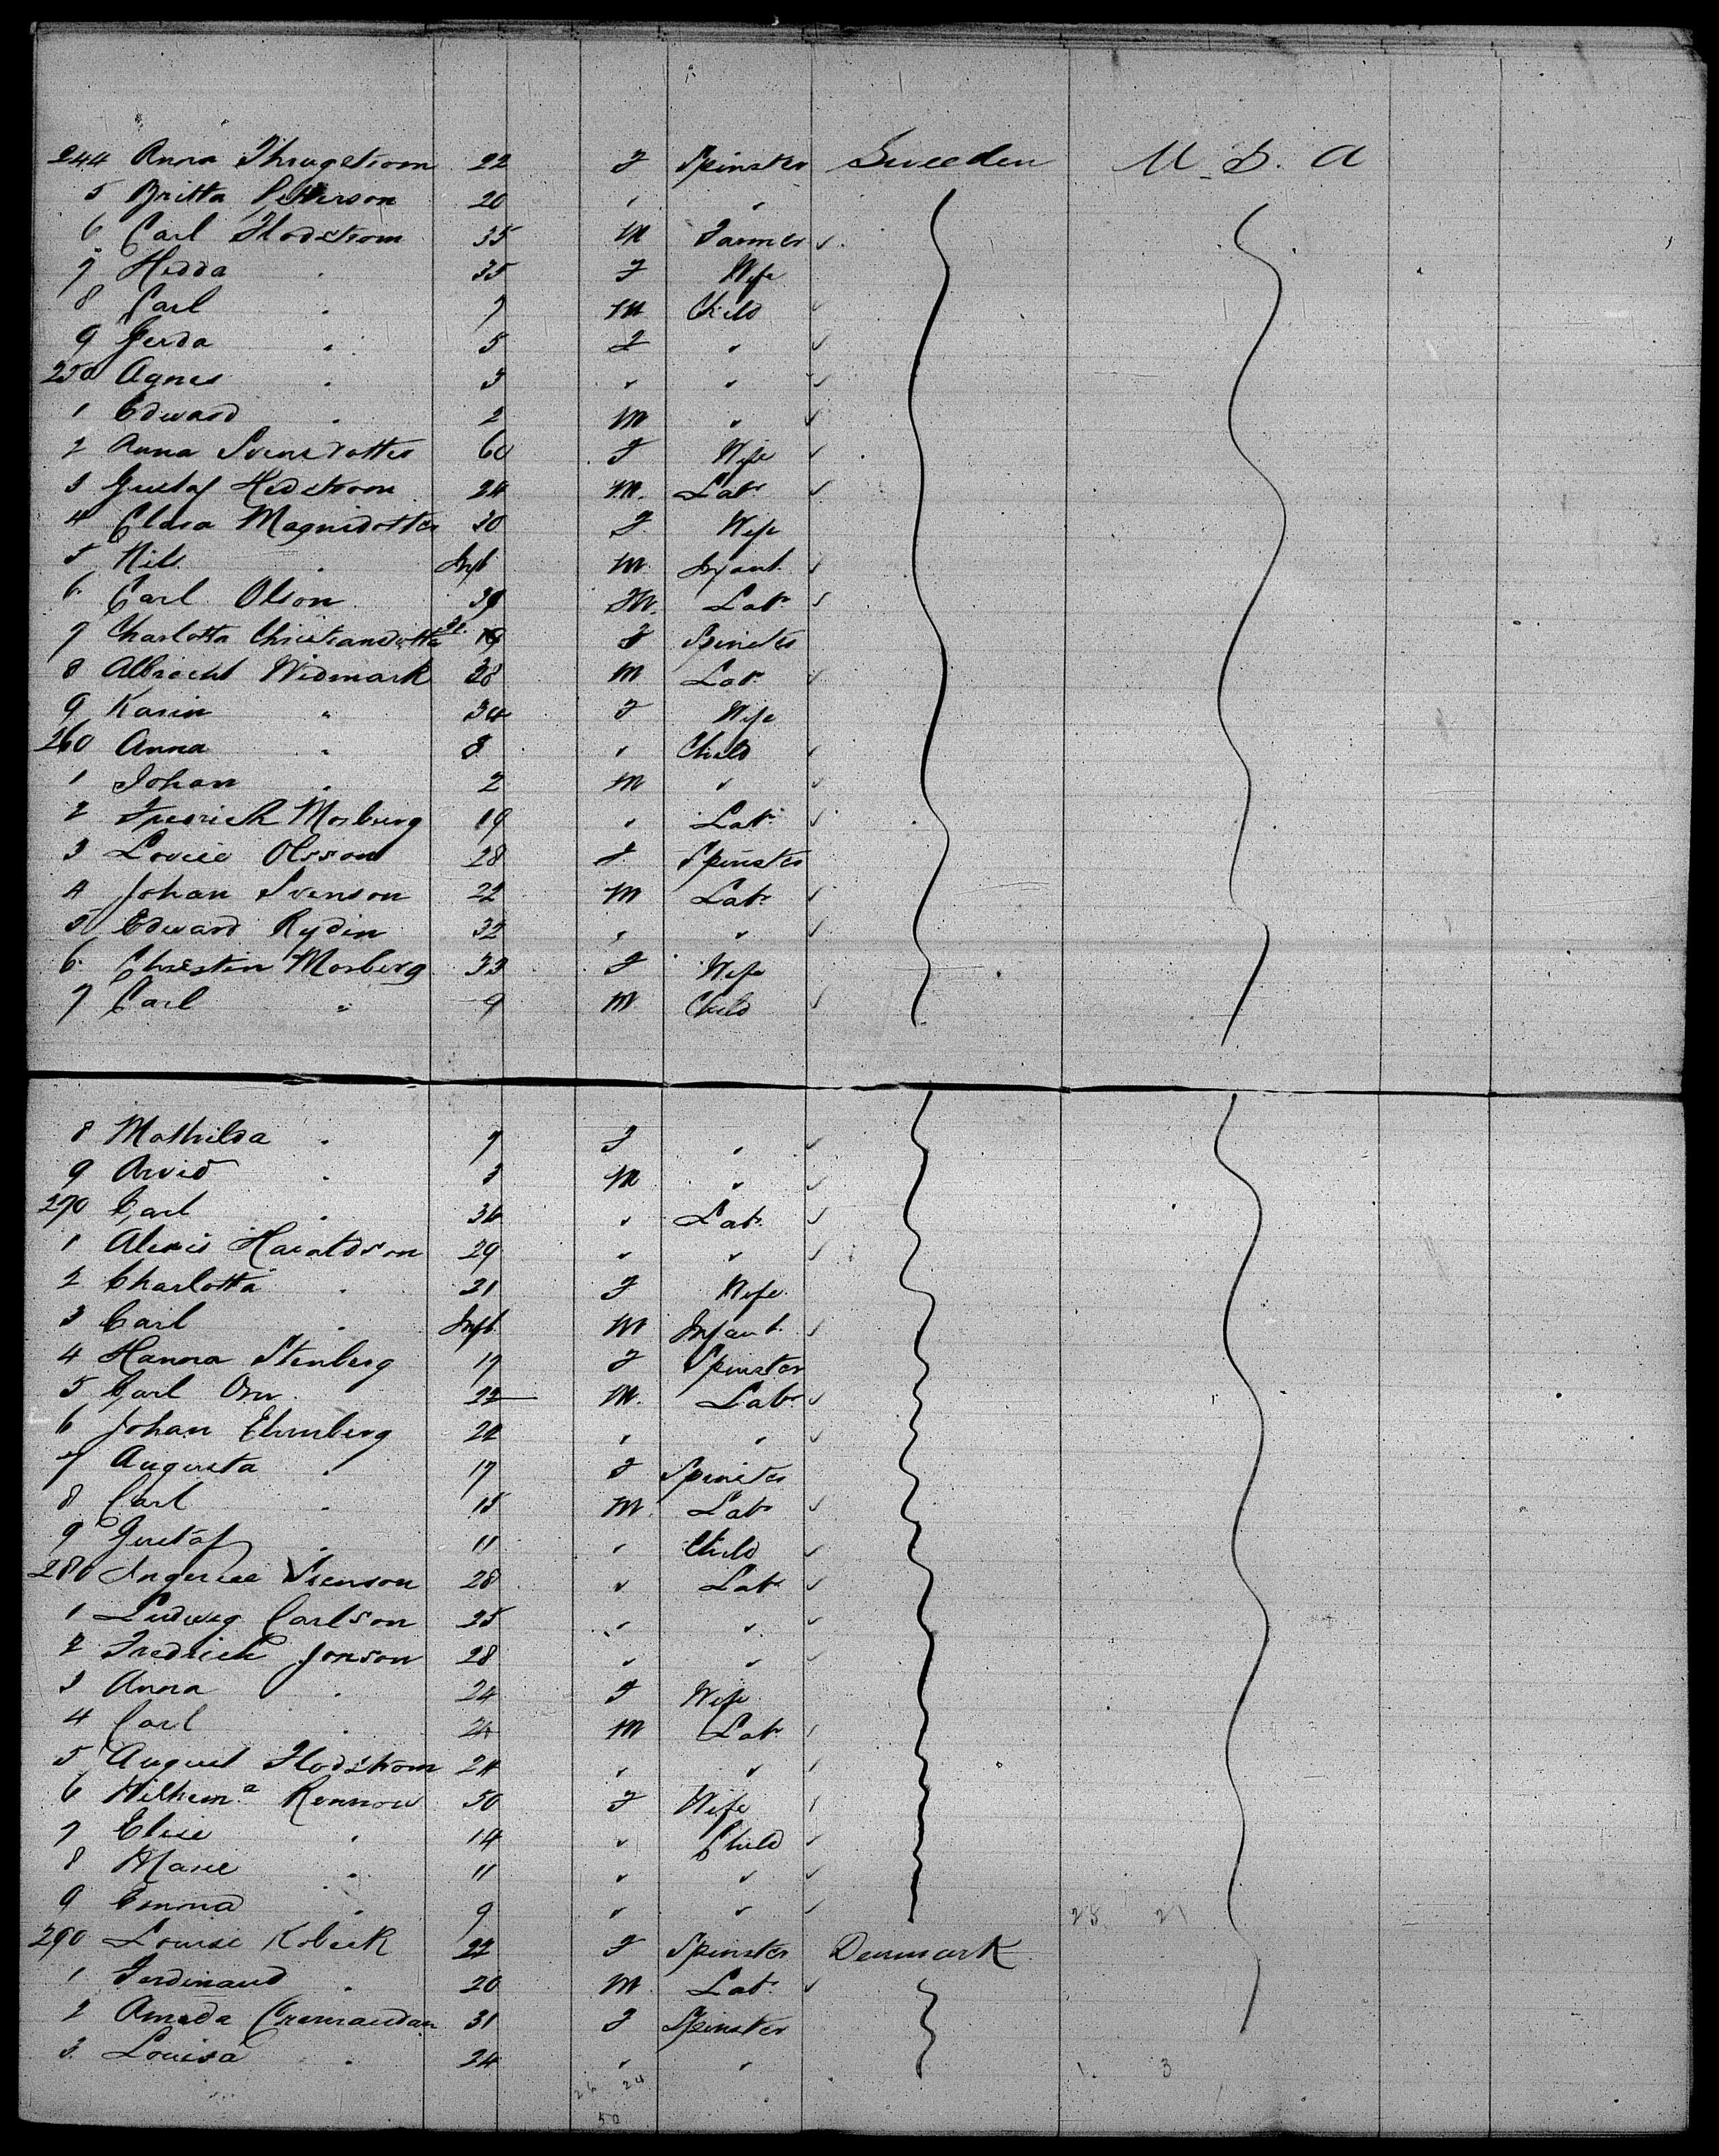 244 Anna Thrugstrom 22 F Spinster Sweeden U.S.A
5 Britta Petterson 20 " "
6 Carl Flodstrom 35 M Farmer
7 Hedda " 35 F Wife
8 Carl " 7 M Child
9 Gerda " 5 F "
250 Agnes " 3 " "
1 Edward " 2 M "
2 Anna Svensdotter 60 F Wife
3 Gustaf Hedstrom 24 M. Labr
4 Clara Magnidotter 30 F Wife
5 Nils " Inft M. Infant
6 Carl Olson 39 M. Labr
7 Charlotta Christiansdotter F Spinster
8 Albrecht Widmark 38 M Labr
9 Karin " 34 F Wife
260 Anna " 8 " Child
1 Johan " 2 M "
2 Fredrick Morburg 19 " Labr
3 Lovise Olsson 28 F Spinster
4 Johan Svenson 22 M Labr
5 Edward Rydin 32 " "
6 Christin Morberg 33 F Wife
7 Carl " 9 M Child
8 Mathilda " 7 F "
9 Arvid " 3 M "
270 Carl " 36 " Labr
1 Alexis Haraldson 29 " "
2 Charlotta " 21 F Wife
3 Carl " Inft M Infant
4 Hanna Stenberg 17 F Spinster
5 Carl Orn 22 M. Labr
6 Johan Ehrnberg 22 " "
7 Augusta " 17 F Spinster
8 Carl " 15 M. Labr
9 Gustaf " 11 " Child
280 Svenson 28 " Labr
1 Ludwig Carlson 25 " "
2 Fredrick Jonson 28 " "
3 Anna " 24 F Wife
4 Carl " 24 M Labr
5 August Flodstrom 24 " "
6 Wilhem.a Rennow 50 F Wife
7 Elise " 14 " Child
8 Marie " 11 " "
9 Emma " 9 " " 28 21
290 Louise Kobeck 22 F Spinster Denmark
1 Ferdinand " 20 M. Labr
2 Ameda 31 F Spinster
3 Louisa " 24 " " 1. 3
26 24
50